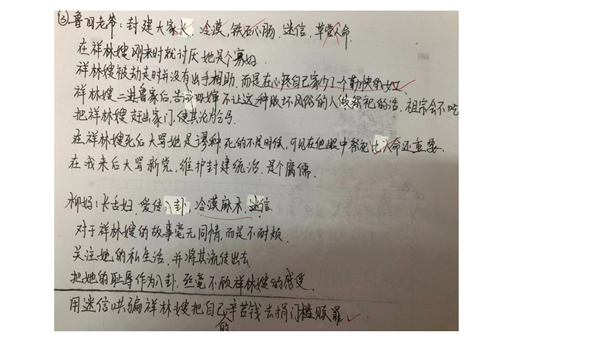 (3)鲁四老爷:封建大家长,冷漠,铁石心肠,迷信,草菅人命
在祥林嫂刚来时就讨厌她是个寡妇
祥林嫂被劫走时并没有出手相助,而是在心疼自己家少了一个勤快的女工
祥林嫂二进鲁家后,告诫四婶不让这种败坏风俗的人做祭祀的活,祖宗会不吃
把祥林嫂赶出家门,使其沦为乞丐
在祥林嫂死后大骂她是谬种 死的不是时候,可见在他眼中祭祀比人命还重要
在我来后大骂新党,维护封建统治,是个腐儒.
柳妈:长舌妇,爱传八卦,冷漠麻木,迷信
对于祥林嫂的故事毫无同情,而是不耐烦.
关注她的私生活,并将其流传出去
把她的耻辱作为八卦,丝毫不顾祥林嫂的感受
用迷信哄骗祥林嫂把自己的辛苦钱去捐门槛赎罪